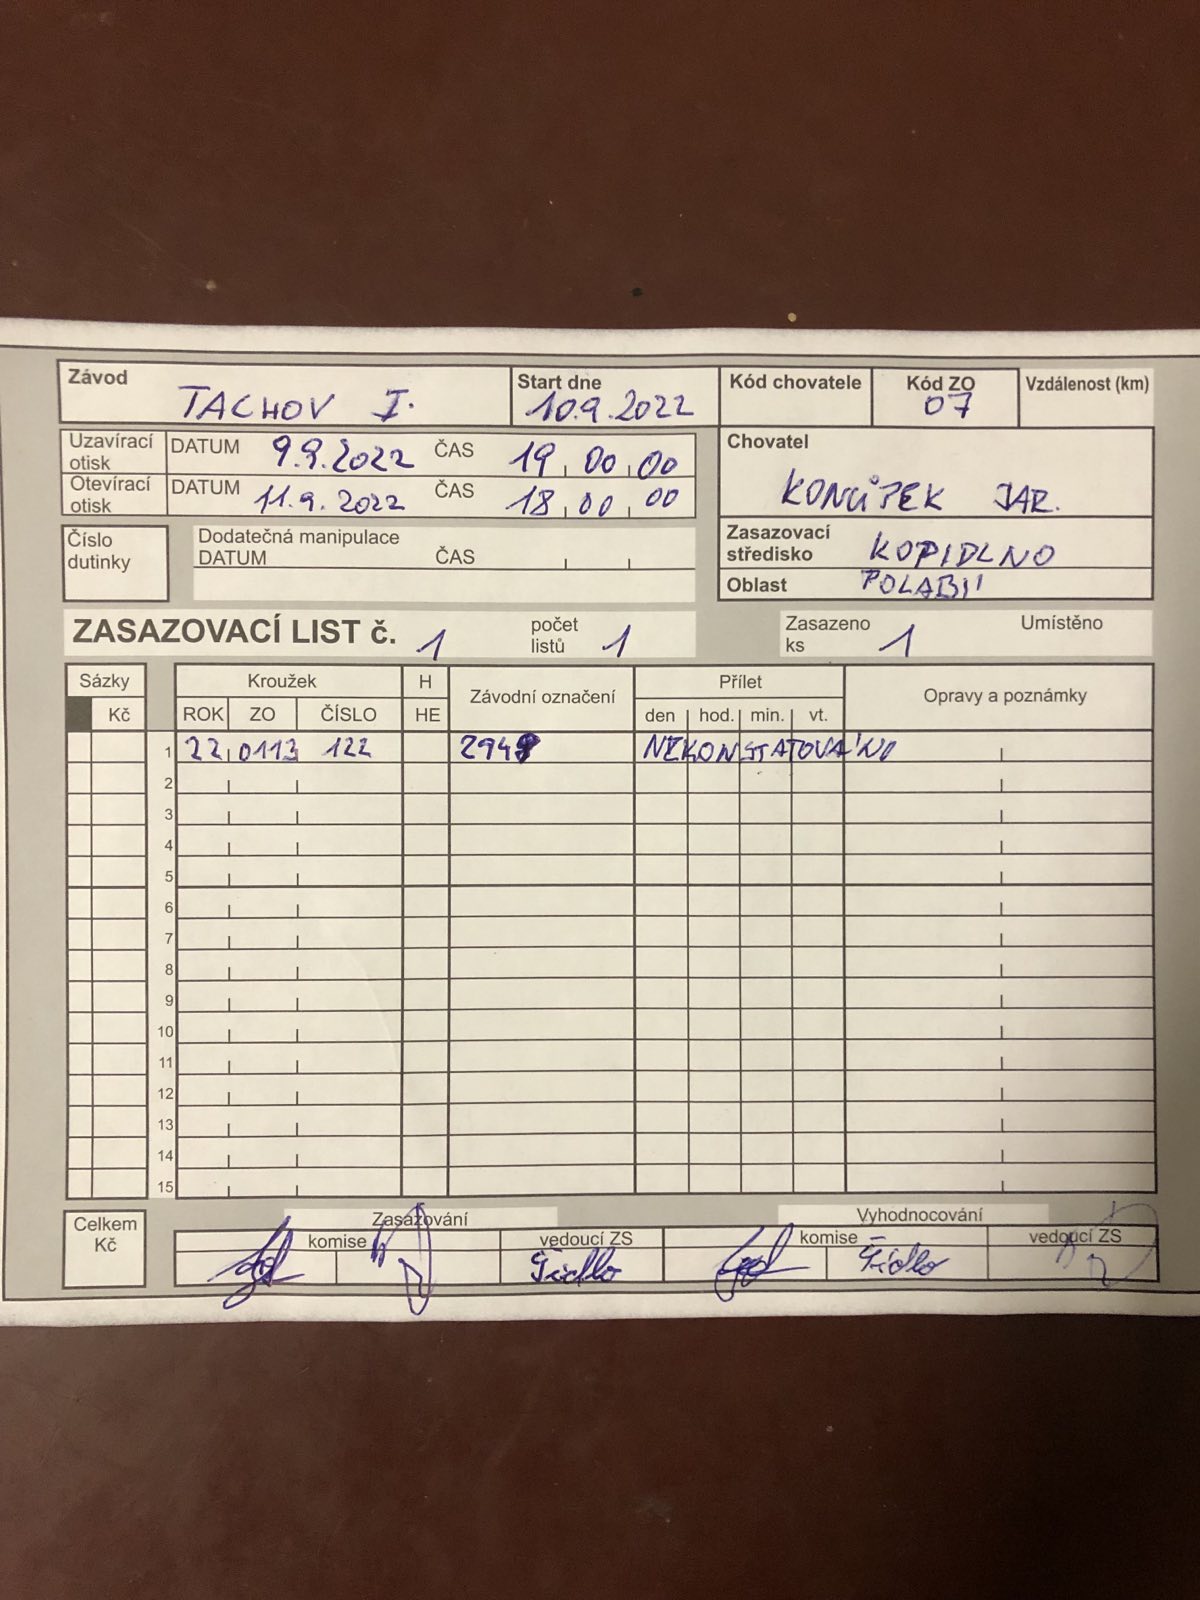 Závod TACHOV I. Start dne 10.9.2022 Kód chovatele Kód ZO 07 Vzdálenost (km)
Uzavírací otisk DATUM 9.9.2022 ČAS 19 00 00
Otevírací otisk DATUM 11.9.2022 ČAS 18 00 00
Chovatel
JAR.
Číslo dutinky
Dodatečná manipulace
DATUM ČAS
Zasazovací středisko KOPIDLNO
Oblast POLABÍ
ZASAZOVACÍ LIST č. 1 počet listů 1 Zasazeno ks 1 Umístěno
Sázky Kroužek H Závodní označení Přílet Opravy a poznámky
Kč ROK ZO ČÍSLO HE den hod. min. vt.
1 22 0113 122 NEKONSTATOVÁNO
2
3
4
5
6
7
8
9
10
11
12
13
14
15
Celkem Kč
Zasazování Vyhodnocování
komise vedoucí ZS komise vedoucí ZS